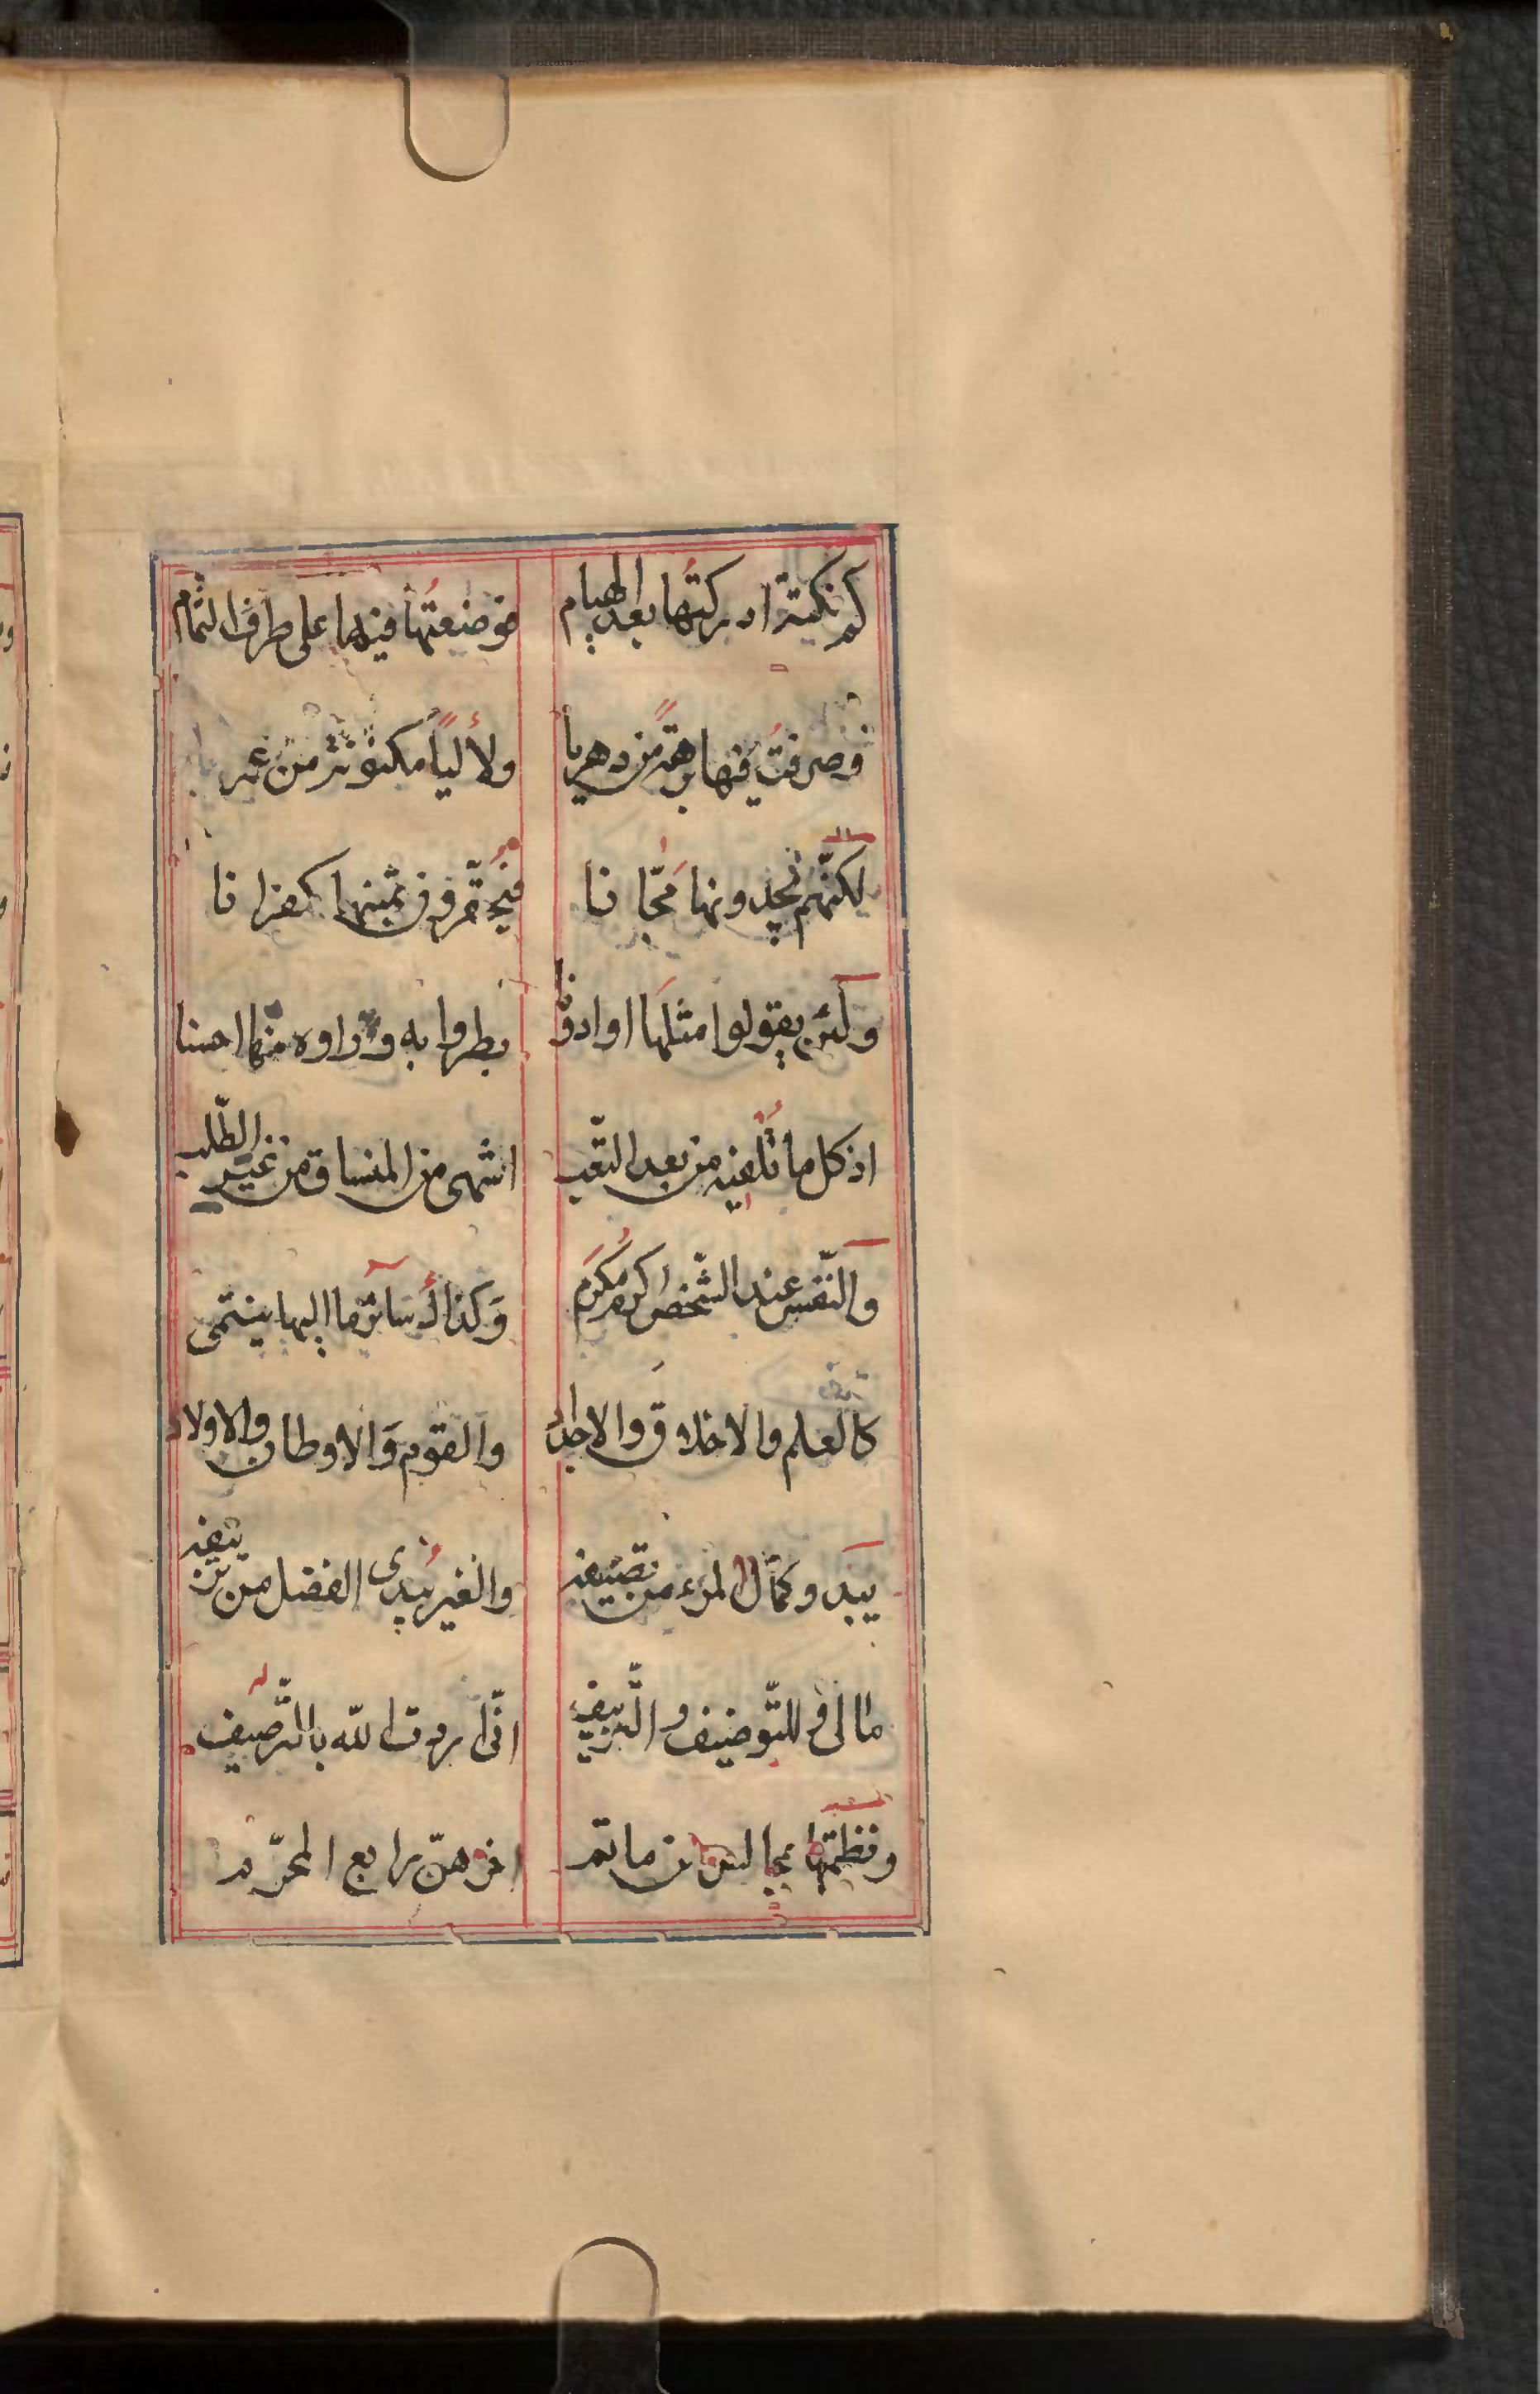 كم نكتة ادركتها بعد الهيام فوضعتها فيها على طرف الثمام
فصرفت فيها برهة من دهريا ولأليًا مكنونة من
لكنّهم يجدونها مجّانا فيحقّرون ثمينها كفرانا
ولئن يقولوا مثلها او ادونا بطروا به وراوه منها احسنا
اذ كل ما تلفيه من بعد التّعب اشهى من المنساق من غير الطّلب
والنّفس عند الشّخص اكرم مكرم وكذاك سائر ما اليها ينتمى
كالعلم والاخلاق والاجداد والقوم والاوطان والاولاد
يبدو كمال المرء من تصنيفه والغير يبدى الفضل من تزييفه
مالى وللتّوصيف والتّزييف انّى اردت اللّه بالتّرصيف
ونظمتها بمجالس ماتم اخرهنّ رابع المحرّم